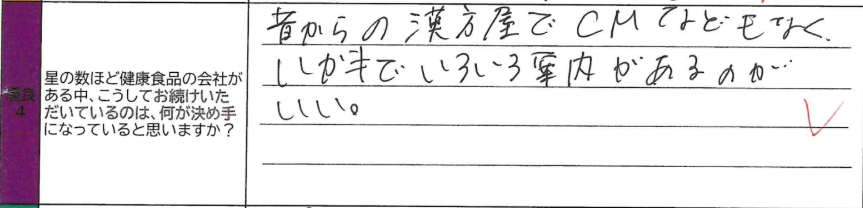 優良
4
星の数ほど健康食品の会社が
ある中、こうしてお続けいた
だいているのは、何が決め手
になっていると思いますか？
昔からの漢方屋でCMなどもなく、
いろいろ案内があるのが
いい。